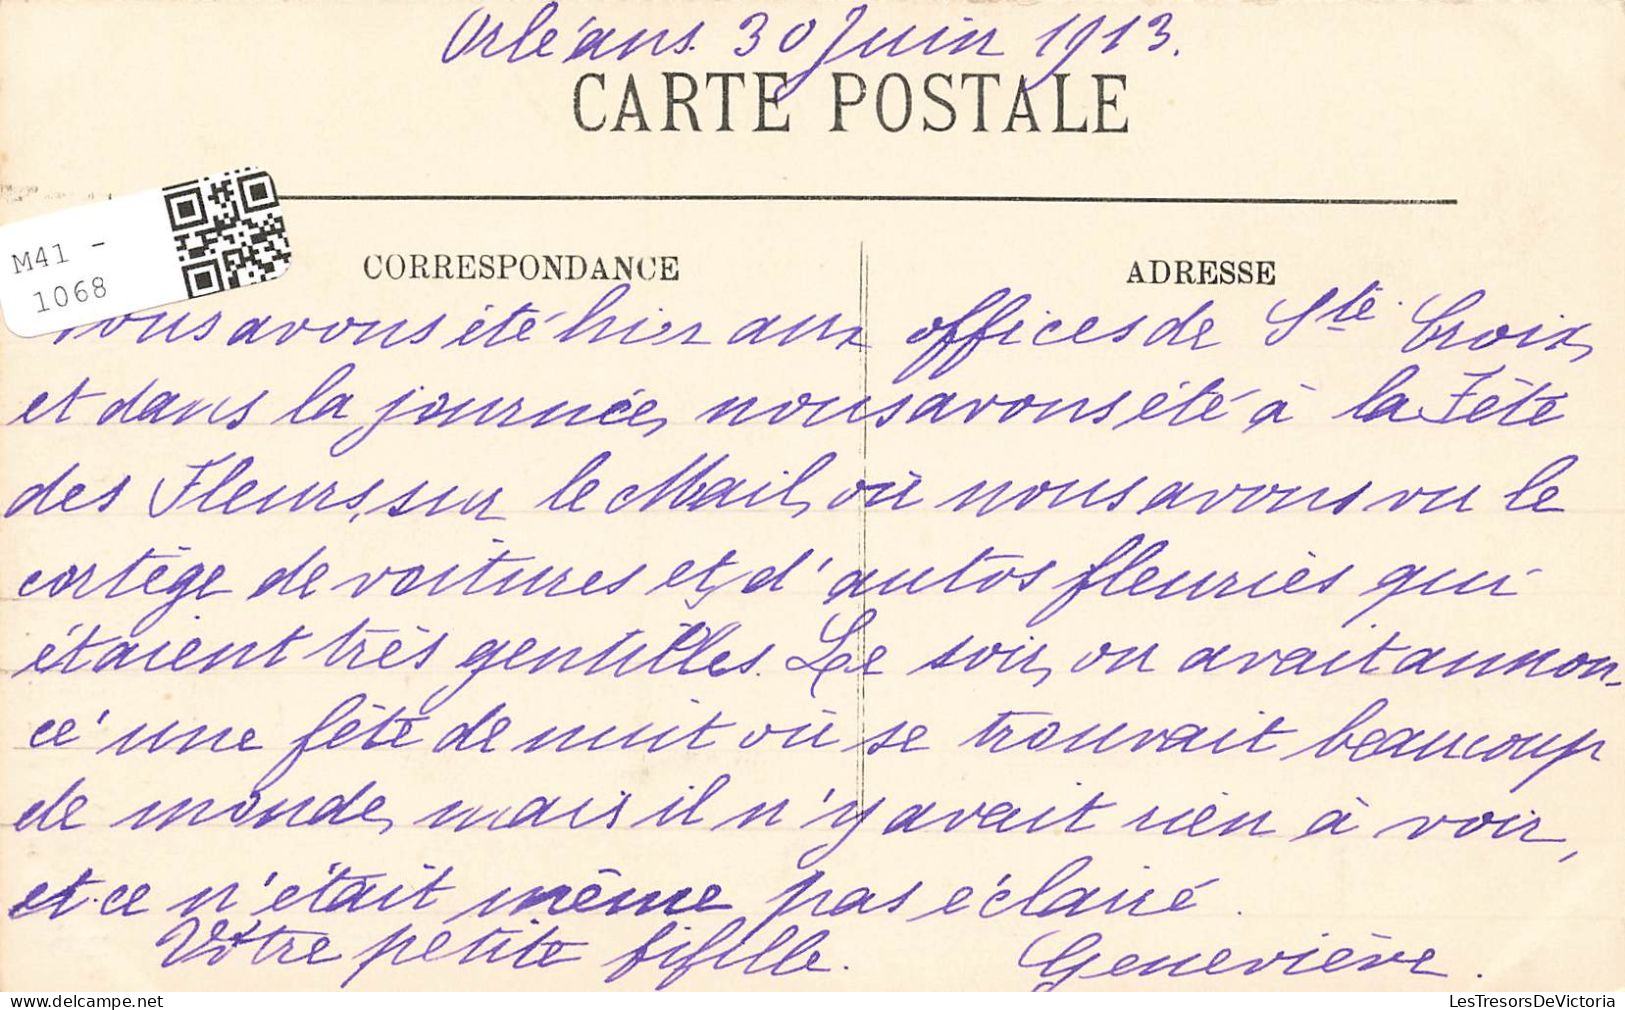 Orléans. 30 Juin 1913.
CARTE POSTALE
M41 -
1068
CORRESPONDANCE
ADRESSE
Nous avons été hier aux offices de Ste Croix,
et dans la journée, nous avons été à la Fête
des Fleurs, sur le Mail, où nous avons vu le
cortège de voitures et, d'autos fleuries qui
étaient très gentilles. Le soir, on avait annon-
cé une fête de nuit où se trouvait beaucoup
de monde, mais il n'y avait rien à voir,
et ce n'était même pas éclairé.
Votre petite fifille. Geneviève.
LesTresorsDeVictoria